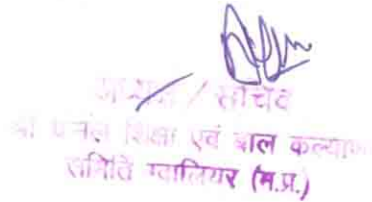 अध्यक्ष / सचिव
श्री शिक्षा एवं बाल कल्याण
समिति ग्वालियर (म.प्र.)